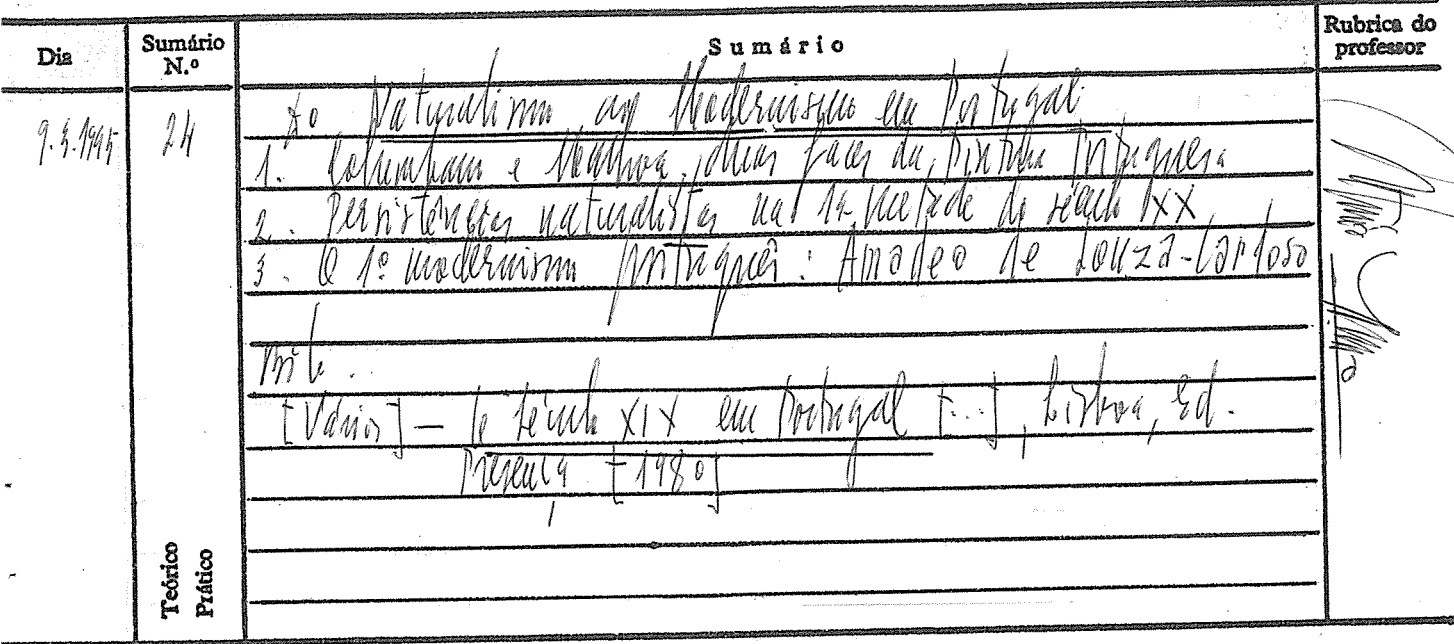 Dia
Sumário N.º
Sumário
Rubrica do professor
9.3.1995
24
Do Naturalismo ao Modernismo em Portugal
1. Columbano e Malhoa, duas faces da pintura portuguesa
2. Persistências naturalistas na 1ª metade do século XX
3. O 1º modernismo português: Amadeo de Souza-Cardoso
Bib.
[Vários] — O século XIX em Portugal [...], Lisboa, Ed.
Presença, [1980]
Teórico
Prático